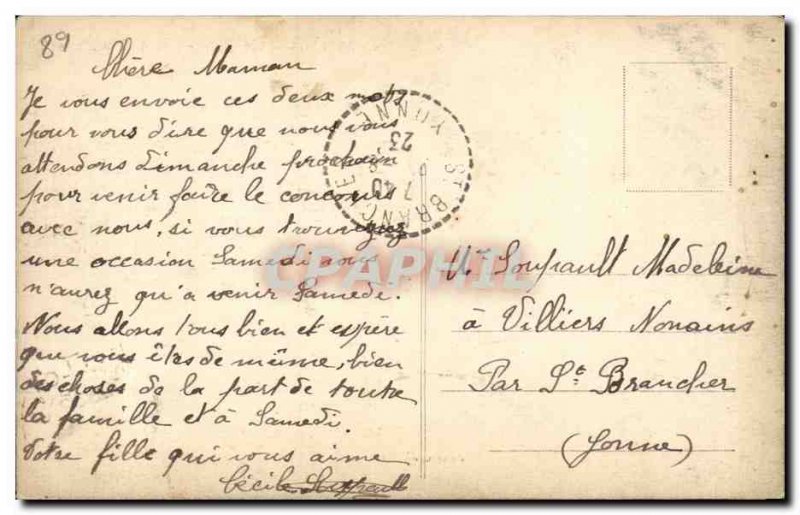 89
Chère Maman
Je vous envoie ces deux mots
pour vous dire que nous vous
attendons dimanche prochain
pour venir faire le concours
avec nous, si vous trouviez
une occasion Samedi vous
n'aurez qu'a venir Samedi.
Nous allons tous bien et espère
que vous êtes de même, bien
des choses de la part de toute
la famille et à Samedi.
Votre fille qui vous aime
Cécile Soupault
ST BRANCHER
YONNE
7 40
23
CPAPHIL
Me Soupault Madeleine
à Villiers Nonains
Par St Brancher
(Yonne)